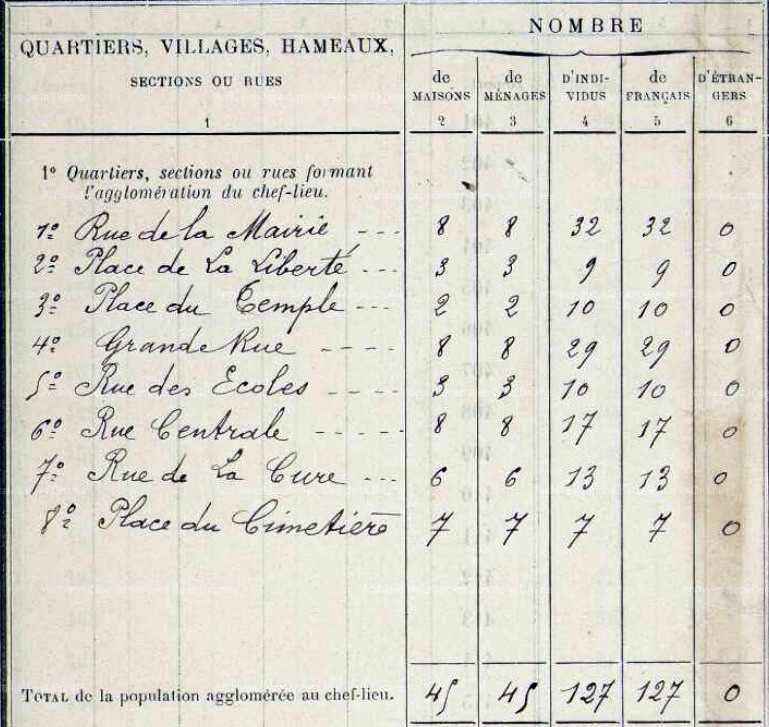 QUARTIERS, VILLAGES, HAMEAUX,
SECTIONS OU RUES
1
NOMBRE
de MAISONS 2
de MÉNAGES 3
D'INDI-VIDUS 4
de FRANÇAIS 5
D'ÉTRAN-GERS 6
1° Quartiers, sections ou rues formant
l'agglomération du chef-lieu.
1º Rue de la Mairie --- 8 8 32 32 0
2º Place de La Liberté --- 3 3 9 9 0
3º Place du Temple --- 2 2 10 10 0
4º Grande Rue ---- 8 8 29 29 0
5º Rue des Ecoles ---- 3 3 10 10 0
6º Rue Centrale ----- 8 8 17 17 0
7º Rue de La Cure --- 6 6 13 13 0
8º Place du Cimetière 7 7 7 7 0
TOTAL de la population agglomérée au chef-lieu. 45 45 127 127 0